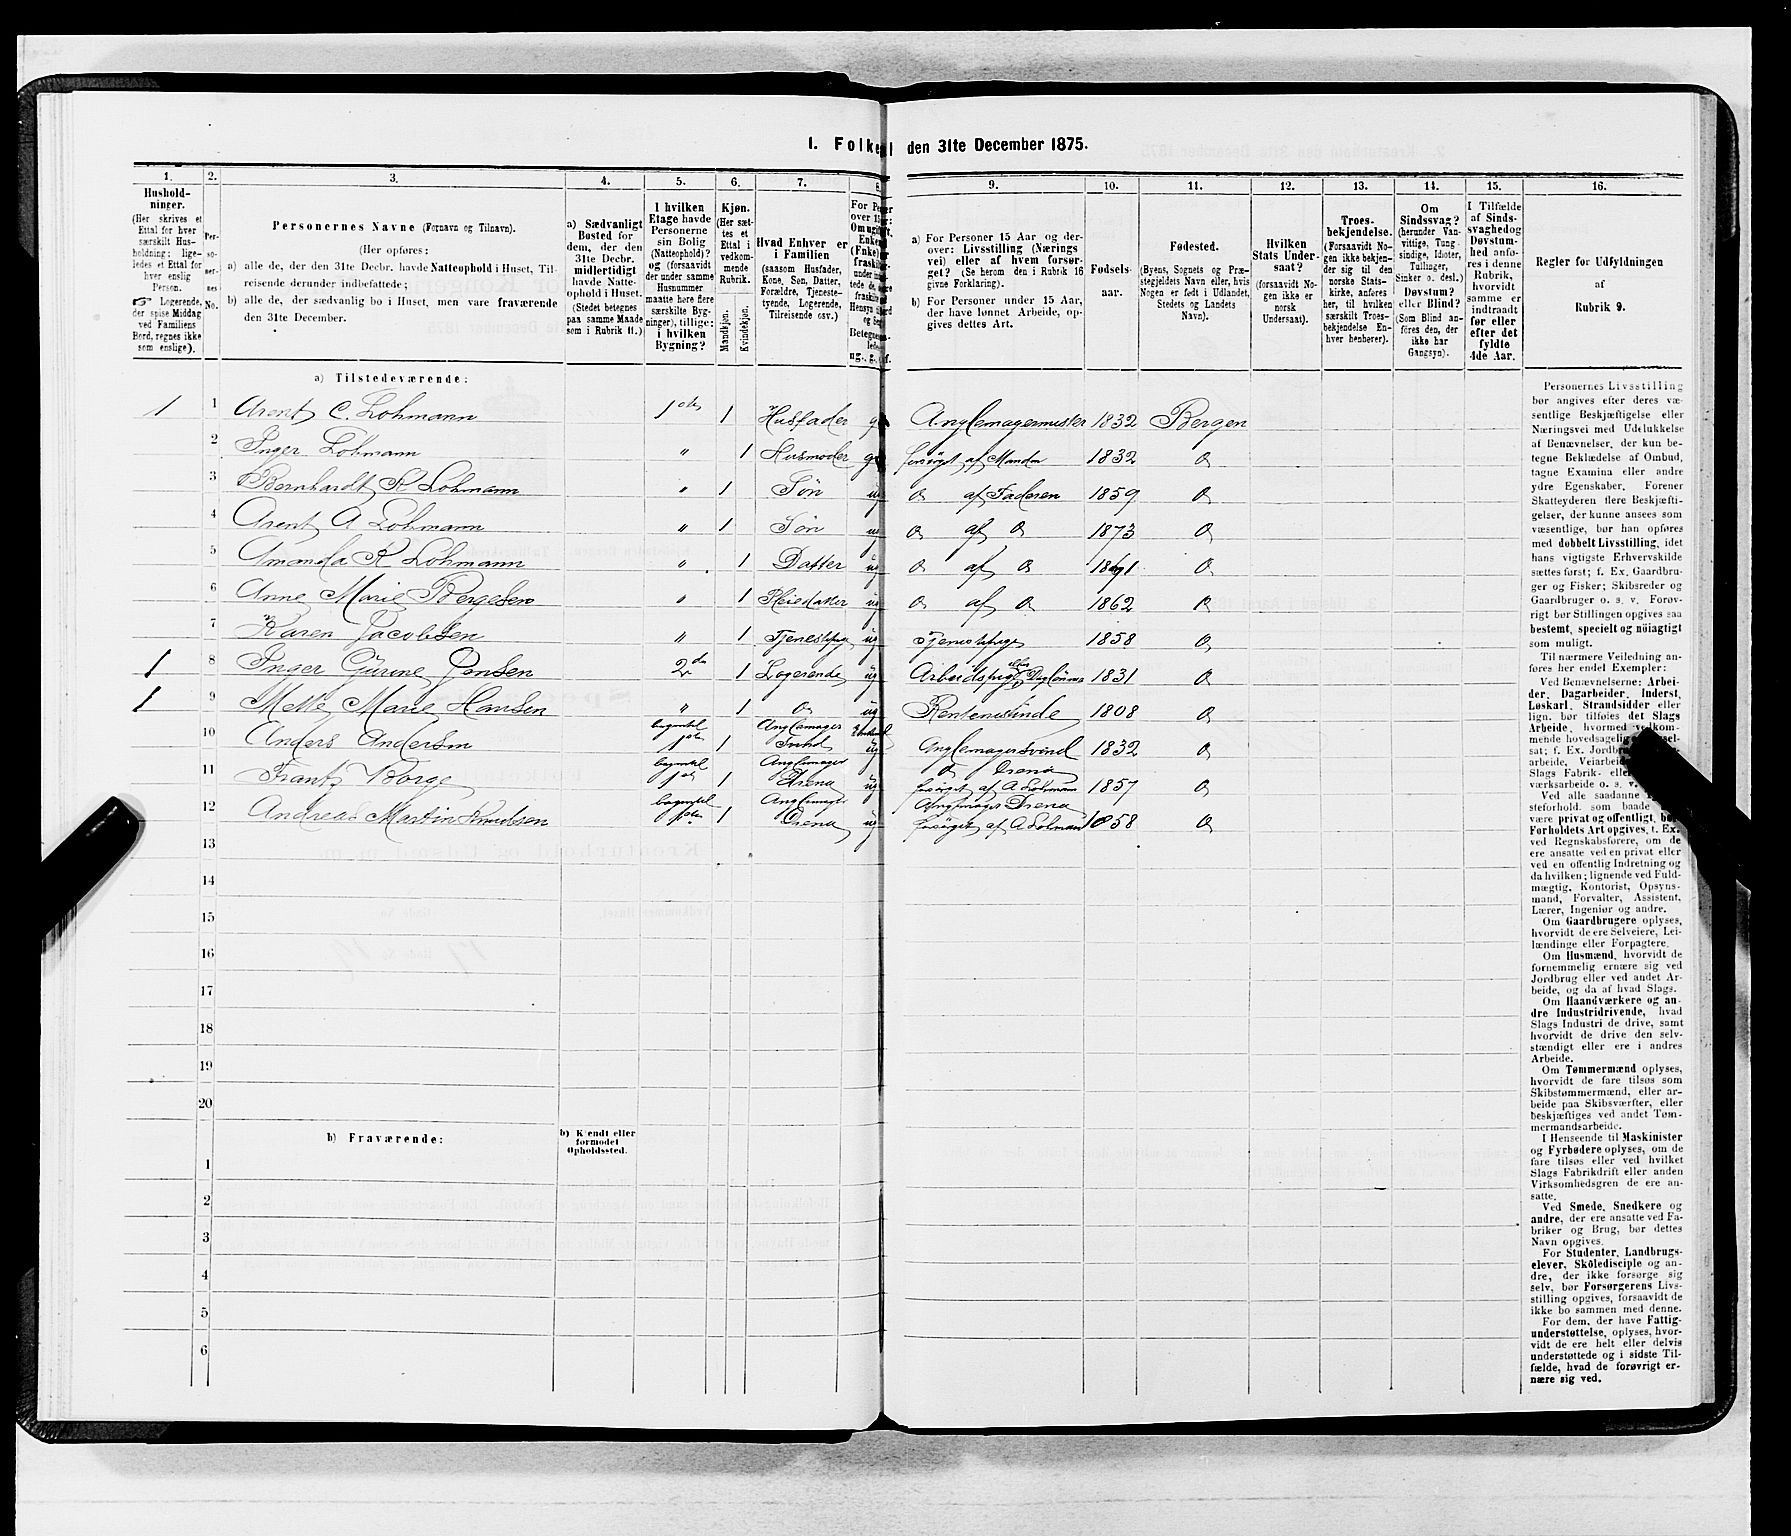 1. Folket
den 31te December 1875.
1.
Hushold-
ninger.
(Her skrives et
Ettal for hver
særskilt Hus-
holdning; lige-
ledes et Ettal for
hver enslig
Person.
Logerende,
der spise Middag
ved Familiens
Bord, regnes ikke
som enslige).
2.
Per-
so-
ner-
nes
No.
3.
Personernes Navne (Fornavn og Tilnavn).
(Her opføres:
a) alle de, der den 31te Decbr. havde Natteophold i Huset, Til-
reisende derunder indbefattede;
b) alle de, der sædvanlig bo i Huset, men vare fraværende
den 31te December.
4.
a) Sædvanligt
Bosted for
dem, der den
31te Decbr.
midlertidigt
havde Natte-
ophold i Huset.
(Stedet betegnes
paa samme Maade
som i Rubrik 11.)
5.
I hvilken
Etage havde
Personerne
sin Bolig
(Natteophold)?
og (forsaavidt
der under samme
Husnummer
maatte høre flere
særskilte Byg-
ninger), tillige:
i hvilken
Bygning?
6.
Kjøn.
(Her sæt-
tes et
Ettal i
vedkom-
mende
Rubrik.
Mandkjøn.
Kvindekjøn.
7.
Hvad Enhver er
i Familien
(saasom Husfader,
Kone, Søn, Datter,
Forældre, Tjeneste-
tyende, Logerende,
Tilreisende osv.)
8.
9.
a) For Personer 15 Aar og der-
over: Livsstilling (Nærings
vei) eller af hvem forsør-
get? (Se herom den i Rubrik 16
givne Forklaring).
b) For Personer under 15 Aar,
der have lønnet Arbeide, op-
gives dettes Art.
10.
Fødsels-
aar.
11.
Fødested.
(Byens, Sognets og Præ-
stegjeldets Navn eller, hvis
Nogen er født i Udlandet,
Stedets og Landets
Navn).
12.
Hvilken
Stats Under-
saat?
(forsaavidt No-
gen ikke er
norsk
Undersaat).
13.
Troes-
bekjendelse.
(Forsaavidt No-
gen ikke bekjen-
der sig til den
norske Stats-
kirke, anføres
her, til hvilken
særskilt Troes-
bekjendelse En-
hver henhører).
14.
Om
Sindssvag?
(herunder Van-
vittige, Tung-
sindige, Idioter,
Tullinger,
Sinker o. desl.)
Døvstum?
eller Blind?
(Som Blind an-
føres den, der
ikke har
Gangsyn).
15.
I Tilfælde
af Sinds-
svaghed og
Døvstum-
hed anfø-
res i denne
Rubrik,
hvorvidt
samme er
indtraadt
før eller
efter det
fyldte
4de Aar.
16.
Regler for Udfyldningen
af
Rubrik 9.
a) Tilstedeværende:
1 1 Arent C. Lohmann 1ste 1 Husfader g Anglemagermester 1832 Bergen
2 Inger Lohmann " 1 Husmoder g forsørget af Manden 1832 do
3 Bernhardt K Lohmann " 1 Søn ug do af Faderen 1859 do
4 Arent A Lohmann " 1 Søn ug do af do 1873 do
5 Amanda K Lohmann " 1 Datter ug do af do do
6 Anne Marie Bergesen " 1 Pleiedatter ug do af do 1862 do
7 Karen Jacobsen " 1 Tjenestepige ug Tjenestepige 1858 do
1 8 Inger Gurine Jensen 2den 1 Logerende ug Arbeidspige Dagløn 1831 do
1 9 Mette Marie Hansen " 1 do ug Rentenistinde 1808 do
10 Anders Andersen 1ste 1 Anglemager Svend ug Anglemagersvend 1832 do
11 Frantz Borge 1ste 1 Anglemager Dreng ug do Dreng forsørget af A Lohmann 1857 do
12 Andreas Martin Knudsen 1ste 1 Anglemager Dreng ug Anglemager Dreng forsørget af A Lohmann 1858 do
13
14
15
16
17
18
19
20
b) Fraværende:
b) Kjendt eller
formodet
Opholdssted.
1
2
3
4
5
6
Personernes Livsstilling
bør angives efter deres væ-
sentlige Beskjæftigelse eller
Næringsvei med Udelukkelse
af Benævnelser, der kun be-
tegne Beklædelse af Ombud,
tagne Examina eller andre
ydre Egenskaber. Forener
Skatteyderen flere Beskjæfti-
gelser, der kunne ansees som
væsentlige, bør han opføres
med dobbelt Livsstilling, idet
hans vigtigste Erhvervskilde
sættes først; f. Ex. Gaardbru-
ger og Fisker; Skibsreder og
Gaardbruger o. s. v. Forøv-
rigt bør Stillingen opgives saa
bestemt, specielt og nöiagtigt
som muligt.
Til nærmere Veiledning an-
føres her endel Exempler:
Ved Benævnelserne: Arbei-
der, Dagarbeider, Inderst,
Løskarl, Strandsidder eller
lign. bør tilføies det Slags
Arbeide, hvormed vedkom-
mende hovedsagelig
sat; f. Ex. Jordbr
arbeide, Veiarbei
Slags Fabrik- elle
værksarbeide o. s. v.
Ved alle saadanne
steforhold, som baade
være privat og offentligt, bør
Forholdets Art opgives, t. Ex.
ved Regnskabsførere, om de
ere ansatte ved en privat eller
ved en offentlig Indretning og
da hvilken; lignende ved Fuld-
mægtig, Kontorist, Opsyns-
mand, Forvalter, Assistent,
Lærer, Ingeniør og andre.
Om Gaardbrugere oplyses,
hvorvidt de ere Selveiere, Lei-
lændinge eller Forpagtere.
Om Husmænd, hvorvidt de
fornemmelig ernære sig ved
Jordbrug eller ved andet Ar-
beide, og da af hvad Slags.
Om Haandværkere og an-
dre Industridrivende, hvad
Slags Industri de drive, samt
hvorvidt de drive den selv-
stændigt eller ere i andres
Arbeide.
Om Tømmermænd oplyses,
hvorvidt de fare tilsøs som
Skibstømmermænd, eller ar-
beide paa Skibsværfter, eller
beskjæftiges ved andet Tøm-
mermandsarbeide.
I Henseende til Maskinister
og Fyrbødere oplyses, om de
fare tilsøs eller ved hvilket
Slags Fabrikdrift eller anden
Virksomhedsgren de ere an-
satte.
Ved Smede, Snedkere og
andre, der ere ansatte ved Fa-
briker og Brug, bør dettes
Navn opgives.
For Studenter, Landbrugs-
elever, Skôledisciple og an-
dre, der ikke forsørge sig
selv, bør Forsørgerens Livs-
stilling opgives, forsaavidt de
ikke bo sammen med denne.
For dem, der have Fattig-
understøttelse, oplyses, hvor-
vidt de ere helt eller delvis
understøttede og i sidste Til-
fælde, hvad de forøvrigt er-
nære sig ved.